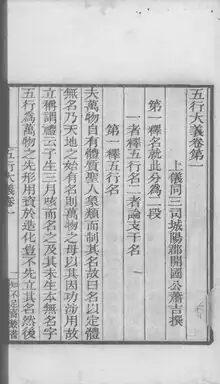 五行大義卷第一
上儀同三司城陽郡開國公蕭吉撰
第一釋名就此分為二段
一者釋五行名二者論支干名
第一釋五行名
夫萬物自有體質聖人象類而制其名故曰名以定體
無名乃天地之始有名則萬物之母以其因功涉用故
立稱謂禮云子生三月咳而名之及其未生本無名字
五行為萬物之先形用資於造化豈不先立其名然後
五行大義卷一
知不足齋叢書